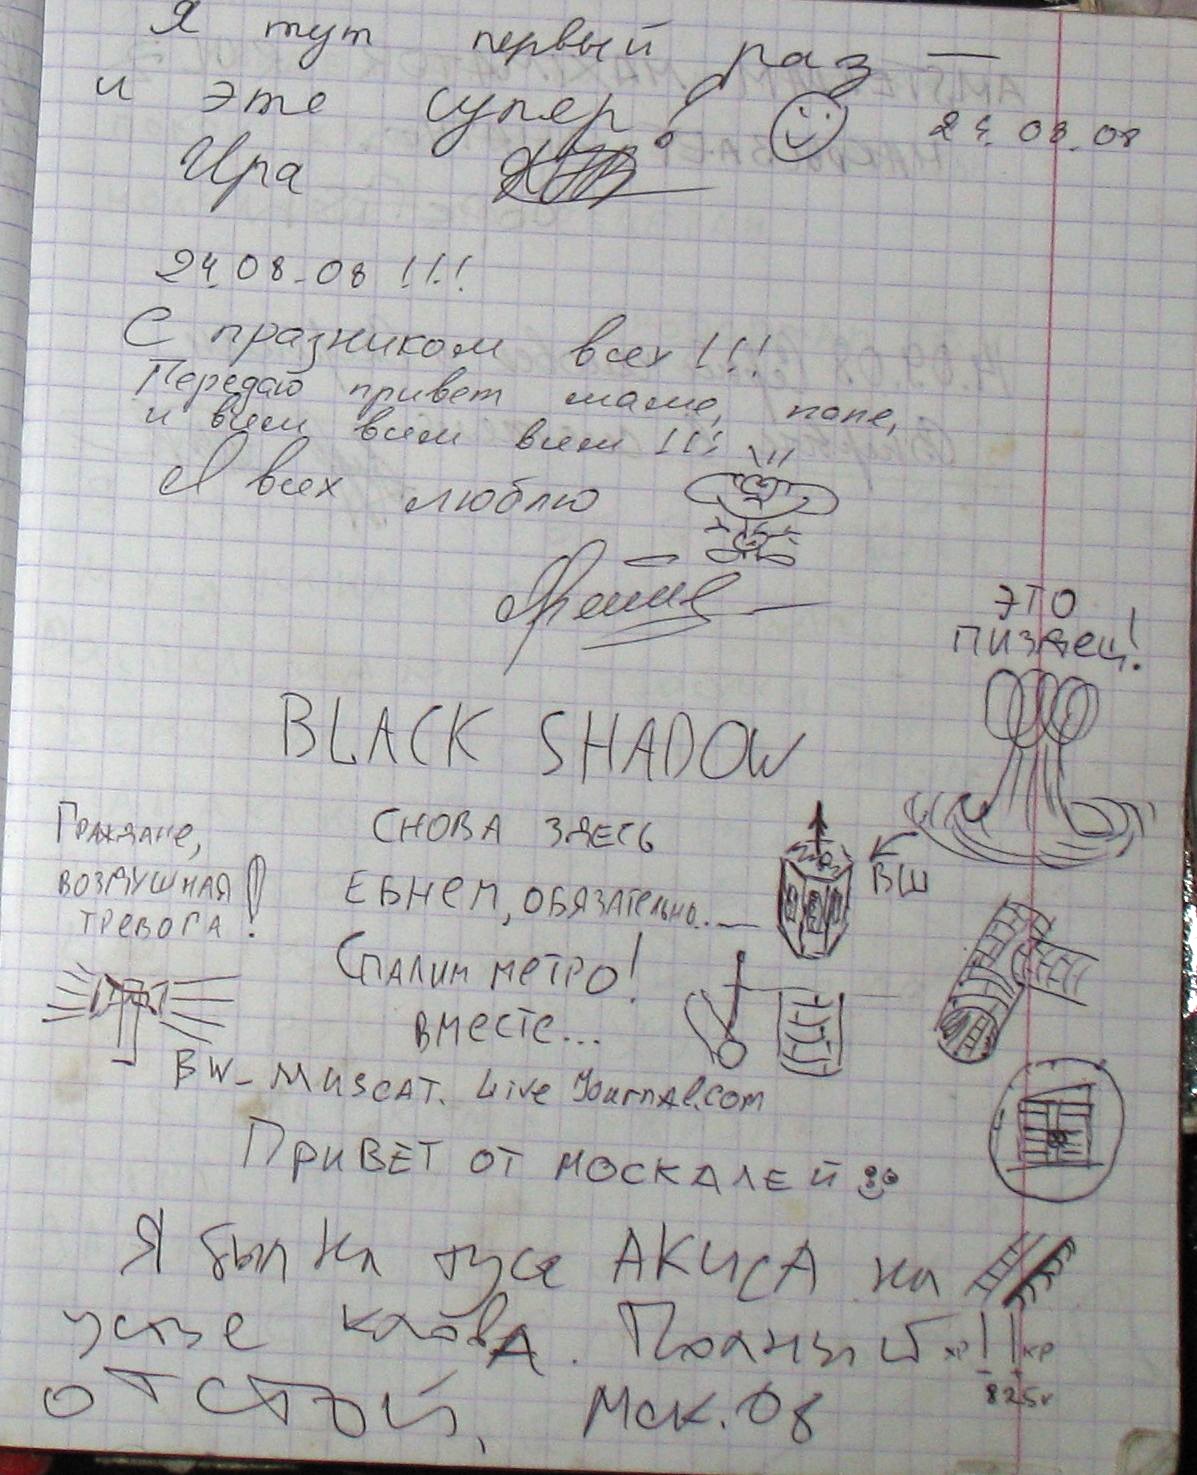 Я тут первый раз —
и это супер!
24.08.08
Ира
24.08-08 !!!
С празником всех!!!
Передаю привет маме, папе,
и всем всем всем !!!
Я всех люблю
ЭТО
ПИЗДЕЦ!
BLACK SHADOW
Граждане,
ВОЗДУШНАЯ
ТРЕВОГА!
СНОВА ЗДЕСЬ
ЕБНЕМ, ОБЯЗАТЕЛЬНО...
ВШ
Спалим метро!
вместе...
BW-MUSCAT.LiveJournal.com
Привет от москалей
Я был на тусе АКИСА на
устье Полный
отстой, Мск.08
кр
825v